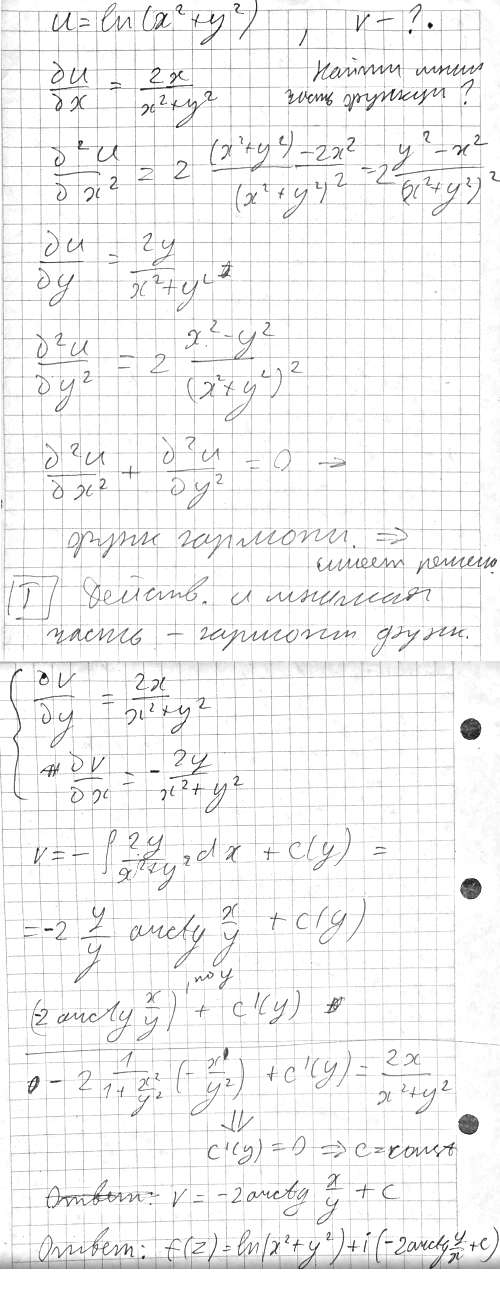 u = ln(x² + y²) , v - ?.
∂u/∂x = 2x/(x²+y²) Найти мним
часть функции?
∂²u/∂x² = 2 ((x²+y²) - 2x²)/(x²+y²)² = 2 (y² - x²)/(x²+y²)²
∂u/∂y = 2y/(x²+y²)
∂²u/∂y² = 2 (x² - y²)/(x²+y²)²
∂²u/∂x² + ∂²u/∂y² = 0 →
функ гармони. ⇒
имеет решен.
[T] Действ. и мнимая
часть – гармонич функ.
{ ∂v/∂y = 2x/(x²+y²)
∂v/∂x = - 2y/(x²+y²)
v = - ∫ 2y/(x²+y²) dx + c(y) =
= -2 y/y arctg x/y + c(y)
, по y
(-2 arctg x/y) + c'(y)
- 2 1/(1 + x²/y²) (- x/y²) + c'(y) = 2x/(x²+y²)
⇓
c'(y) = 0 ⇒ c = const
Ответ: v = -2arctg x/y + c
Ответ: f(z) = ln(x²+y²) + i(-2arctg y/x + c)